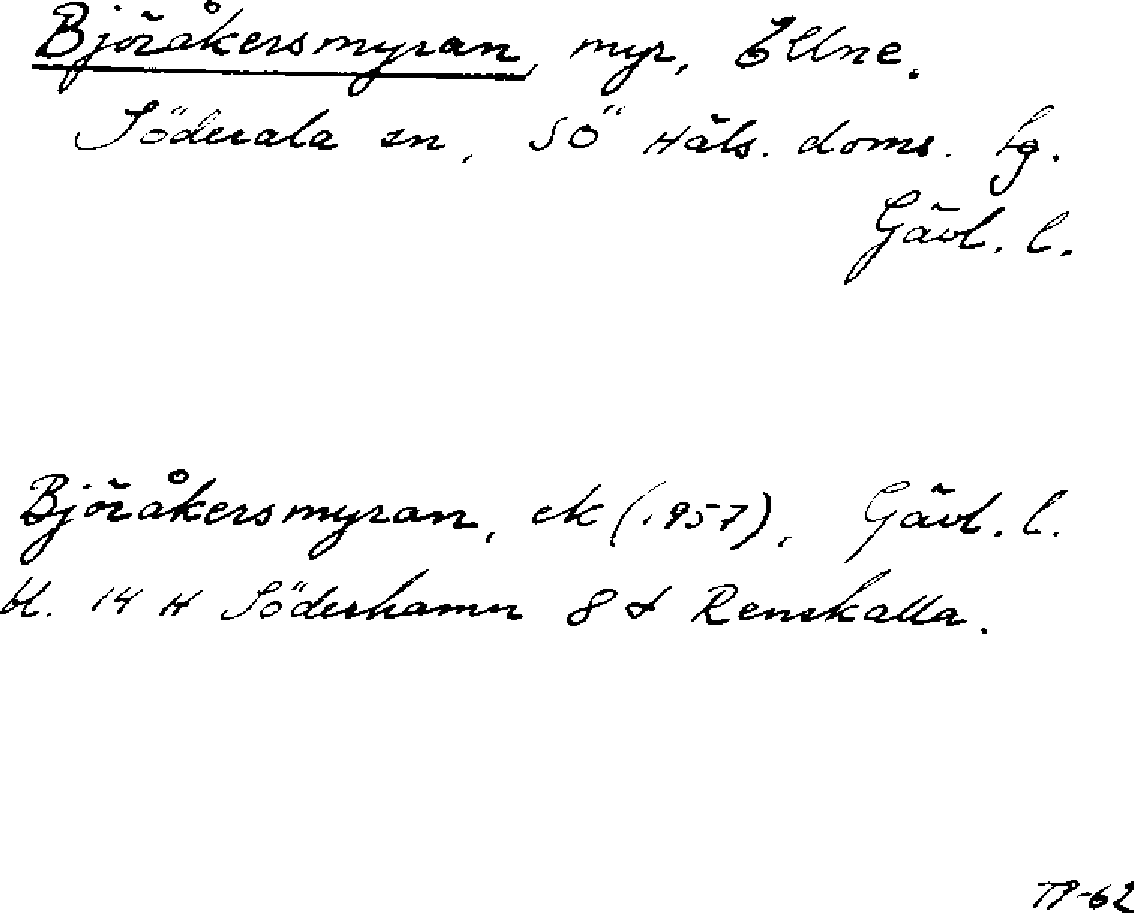 Björåkersmyran, myr, Ellne.
Söderala sn, SÖ Häls. doms. tg.
Gävl. l.
Björåkersmyran, ek (1957), Gävl. l.
bl. 14 H Söderhamn 8 d Renskalla.
TP-62